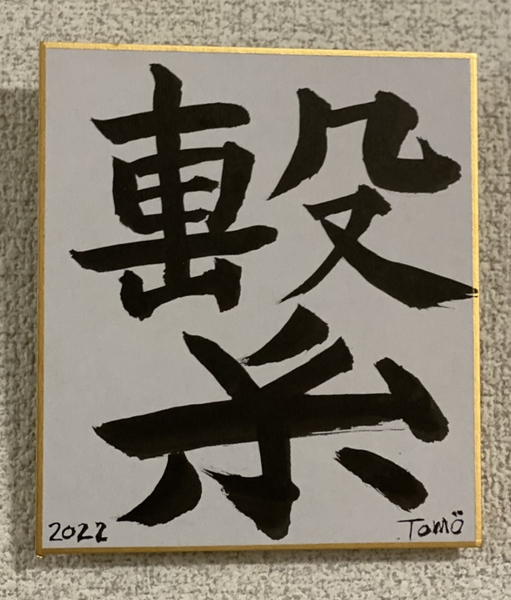 繫
2022 Tomö